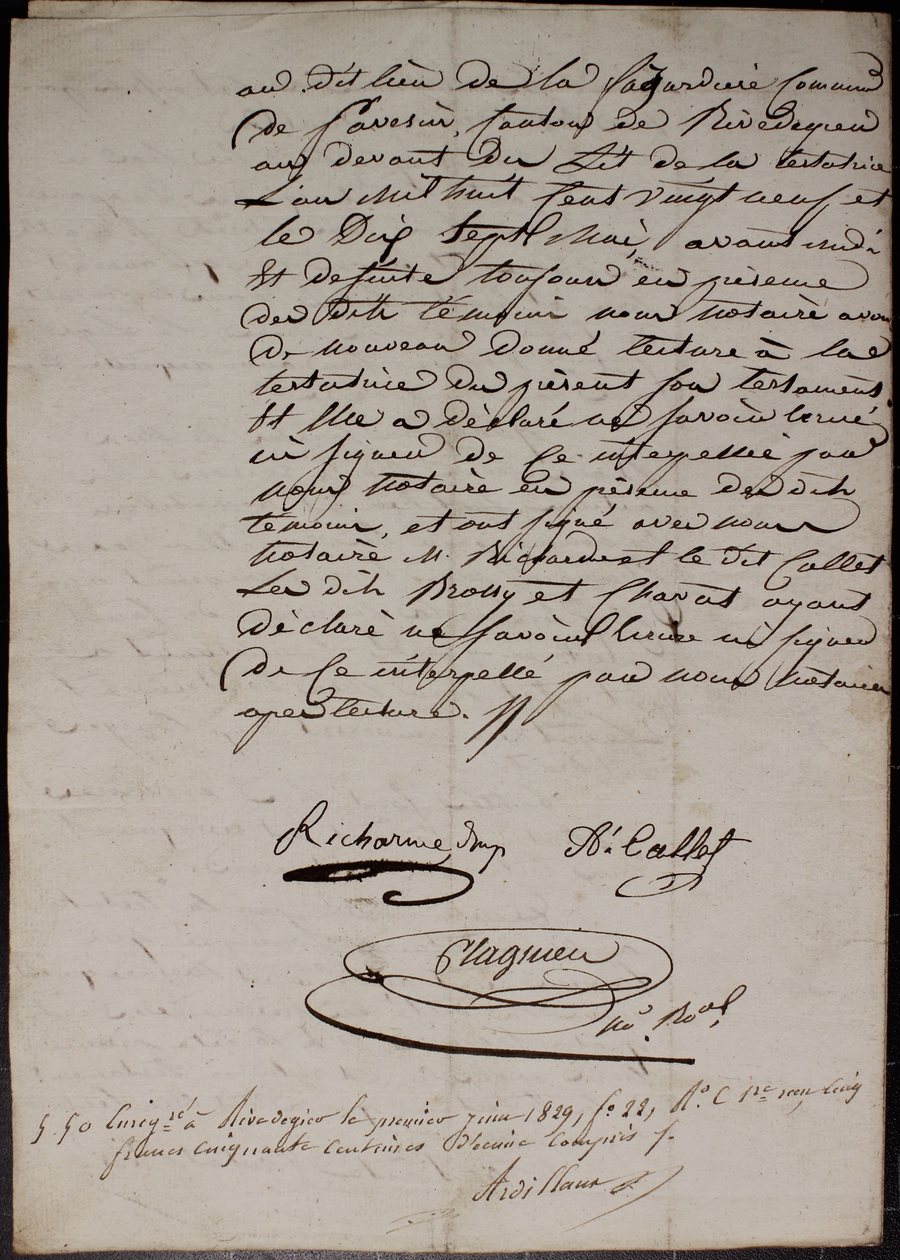 au dit lieu de la Cagardiere Commune
de Farnay, Canton de Rivedegier
au devant du Lit de la testatrice
L'an Mil huit Cent vingt neuf et
le Dix Sept Mai, avant midi
Et de suite toujours en présence
des dits témoins nous Notaire avons
de nouveau donné lecture à la
testatrice du présent son testament
Et Elle a déclaré ne savoir Ecrire
ni signer de Ce interpellée par
nous Notaire en présence des dits
témoins, et ont signé avec nous
Notaire M. et le dit Collet
Les dits Brossy et Chavas ayant
déclaré ne savoir Ecrire ni signer
de Ce interpellé par nous Notaire
après lecture.
Richarme, Ae. Callet
Plagnieu
No. Roal
5 50 Enregré à Rivedegier le premier juin 1829, fo. 22, Ro. C 1re reçu Cinq
francs cinquante centimes Décime Compris
Ardillaux